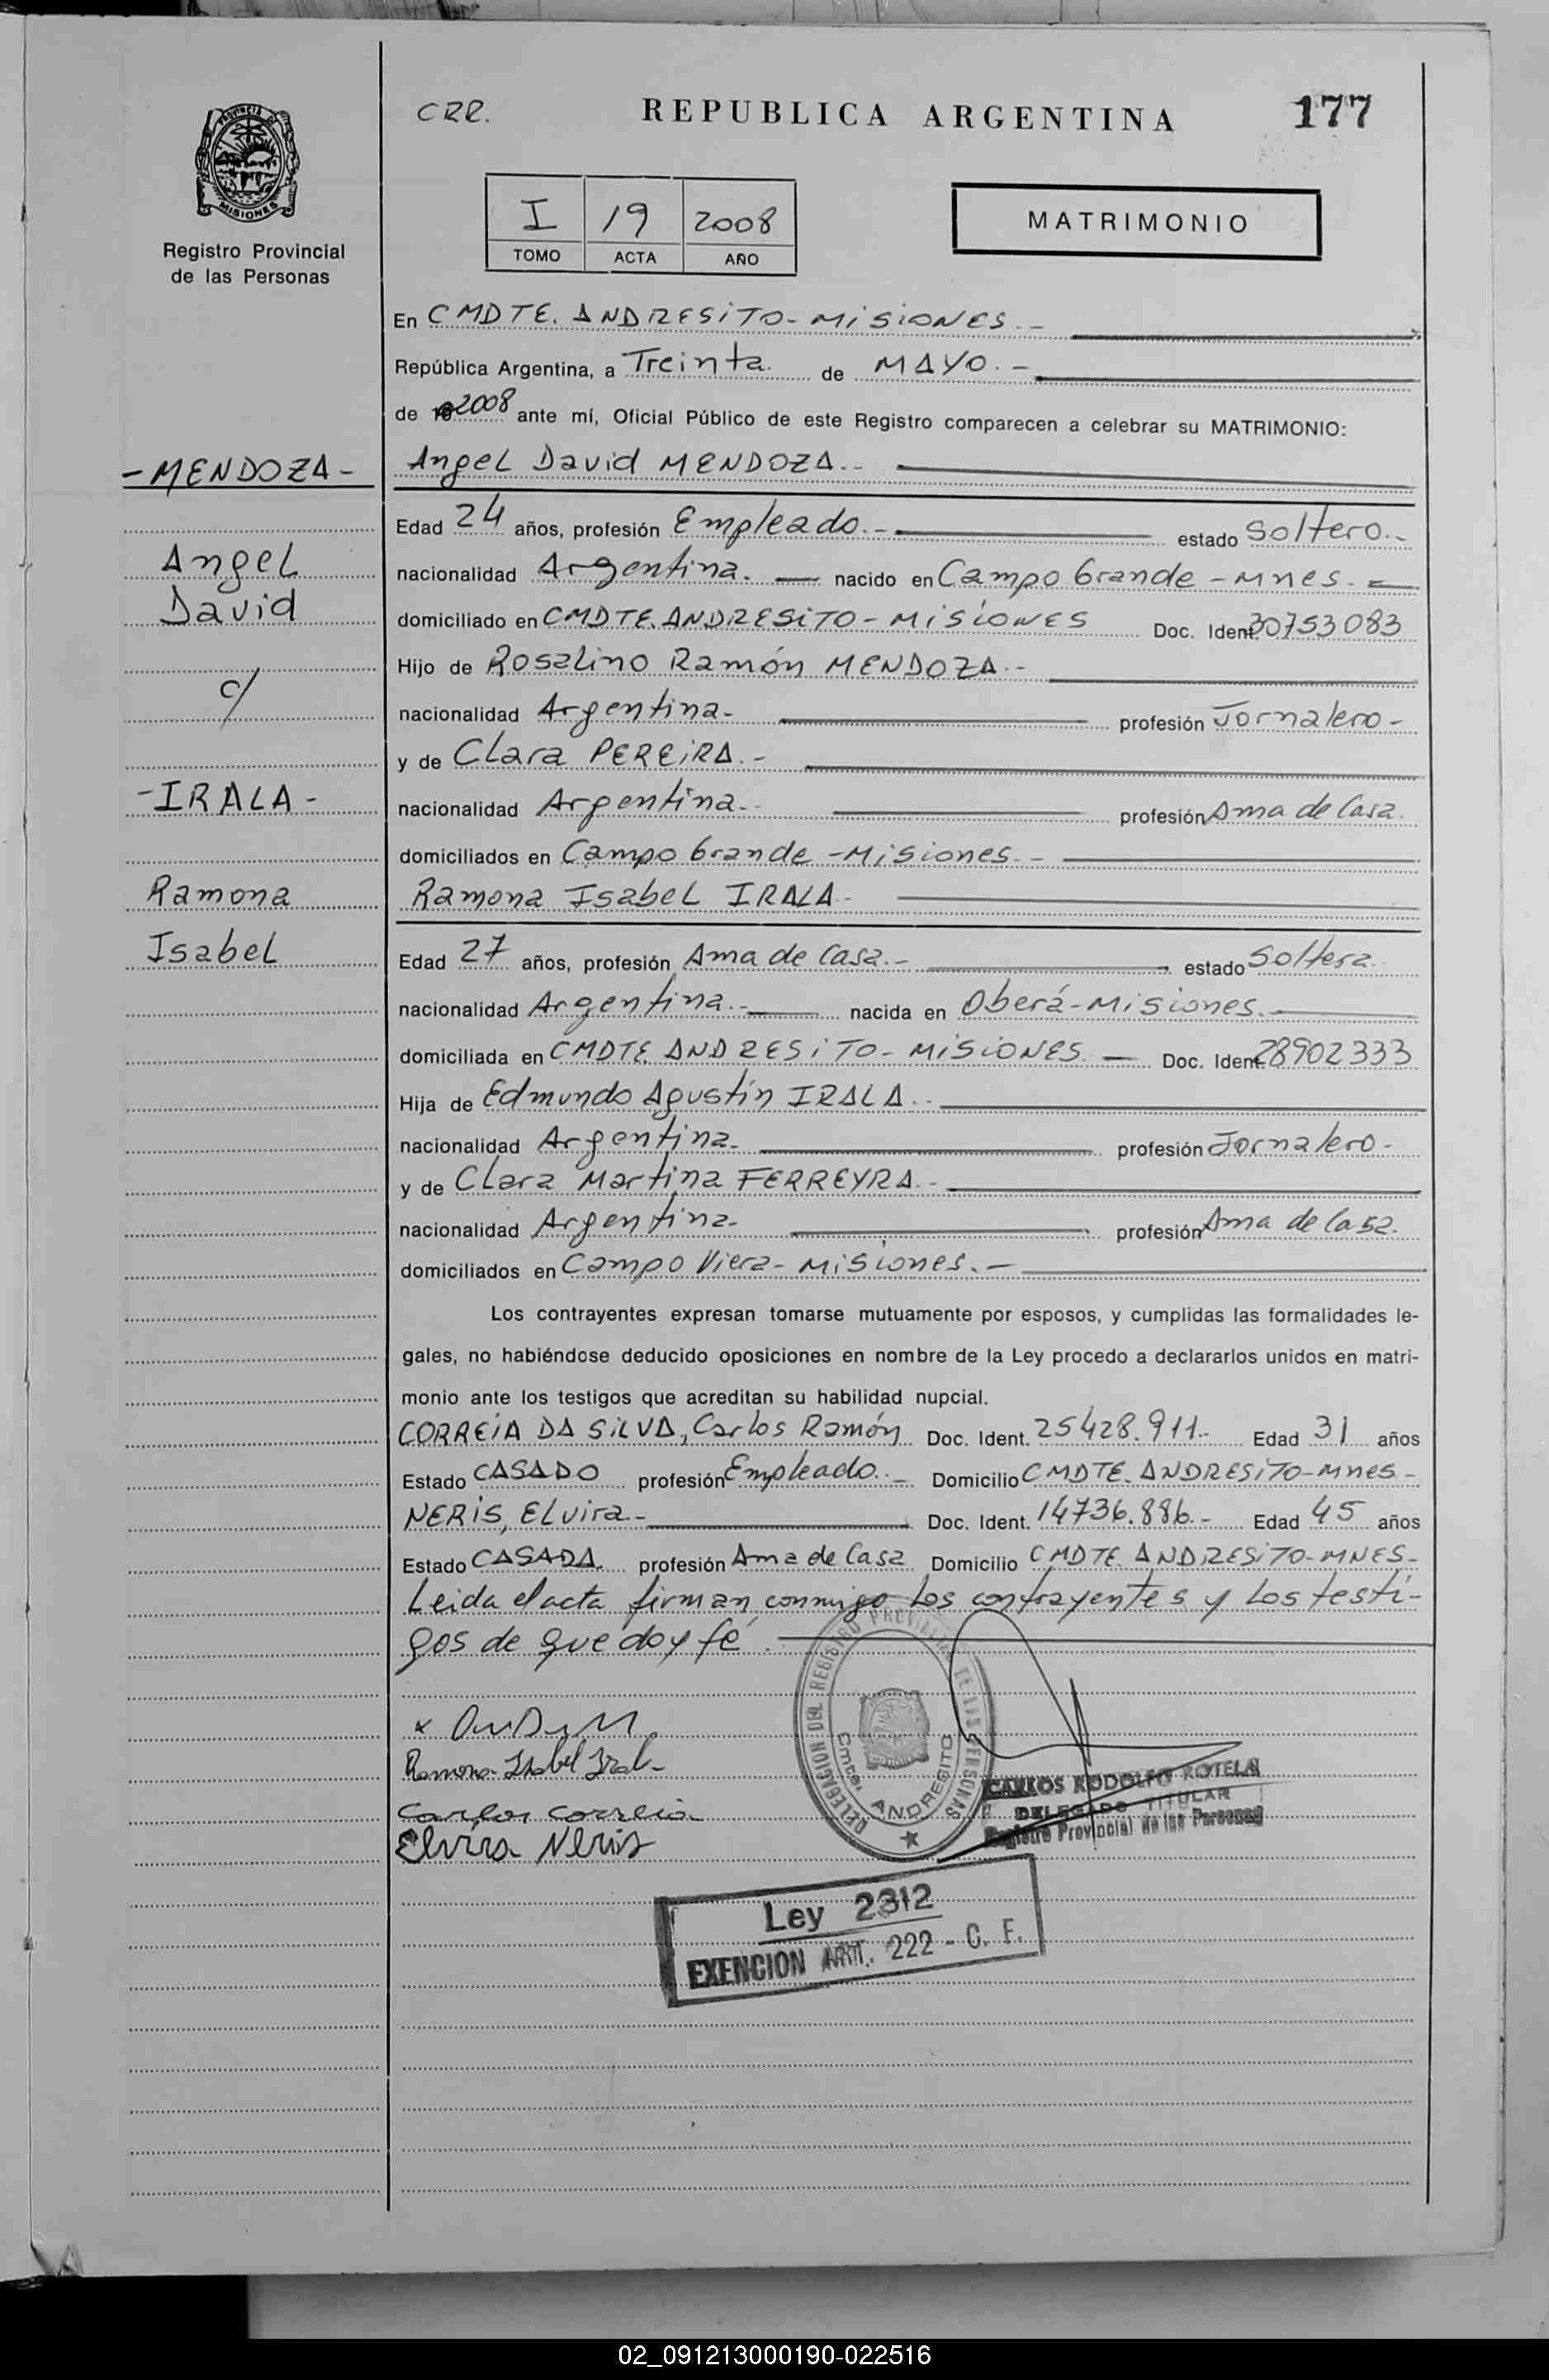 CRR.
REPUBLICA ARGENTINA
177
PROVINCIA DE
MISIONES
Registro Provincial
de las Personas
I 19 2008
TOMO ACTA AÑO
MATRIMONIO
En CMDTE. ANDRESITO - MISIONES.-
República Argentina, a Treinta. de MAYO.-
de 2008 ante mí, Oficial Público de este Registro comparecen a celebrar su MATRIMONIO:
- MENDOZA -
Angel David MENDOZA.-
Edad 24 años, profesión Empleado.- estado Soltero.-
Angel
nacionalidad Argentina. — nacido en Campo Grande - Mnes.
David
domiciliado en CMDTE. ANDRESITO - MISIONES Doc. Ident. 30753083
Hijo de Rosalino Ramón MENDOZA.-
c/
nacionalidad Argentina- profesión Jornalero-
y de Clara PEREIRA.-
- IRALA -
nacionalidad Argentina.- profesión Ama de Casa.
domiciliados en Campo Grande - Misiones.-
Ramona
Ramona Isabel IRALA.-
Isabel
Edad 27 años, profesión Ama de Casa.- estado Soltera.
nacionalidad Argentina.- nacida en Oberá - Misiones.
domiciliada en CMDTE. ANDRESITO - MISIONES. — Doc. Ident. 28902333
Hija de Edmundo Agustín IRALA.-
nacionalidad Argentina- profesión Jornalero-
y de Clara Martina FERREYRA.-
nacionalidad Argentina- profesión Ama de Casa.
domiciliados en Campo Viera - Misiones.-
Los contrayentes expresan tomarse mutuamente por esposos, y cumplidas las formalidades le-
gales, no habiéndose deducido oposiciones en nombre de la Ley procedo a declararlos unidos en matri-
monio ante los testigos que acreditan su habilidad nupcial.
CORREIA DA SILVA, Carlos Ramón Doc. Ident. 25428.911.- Edad 31 años
Estado CASADO profesión Empleado.- Domicilio CMDTE. ANDRESITO - Mnes -
NERIS, Elvira.- Doc. Ident. 14736.886.- Edad 45 años
Estado CASADA. profesión Ama de Casa Domicilio CMDTE. ANDRESITO - MNES -
Leida el acta firman conmigo Los contrayentes y Los testi-
gos de que doy fé.
DELEGACION DEL REGISTRO PROVINCIAL DE LAS PERSONAS
Cmte. ANDRESITO
Ramona Isabel Irala
CARLOS RODOLFO ROTELA
DELEGADO TITULAR
Registro Provincial de las Personas
Carlos Correia
Elvira Neris
Ley 2312
EXENCION ART. 222 - C. F.
02_091213000190-022516